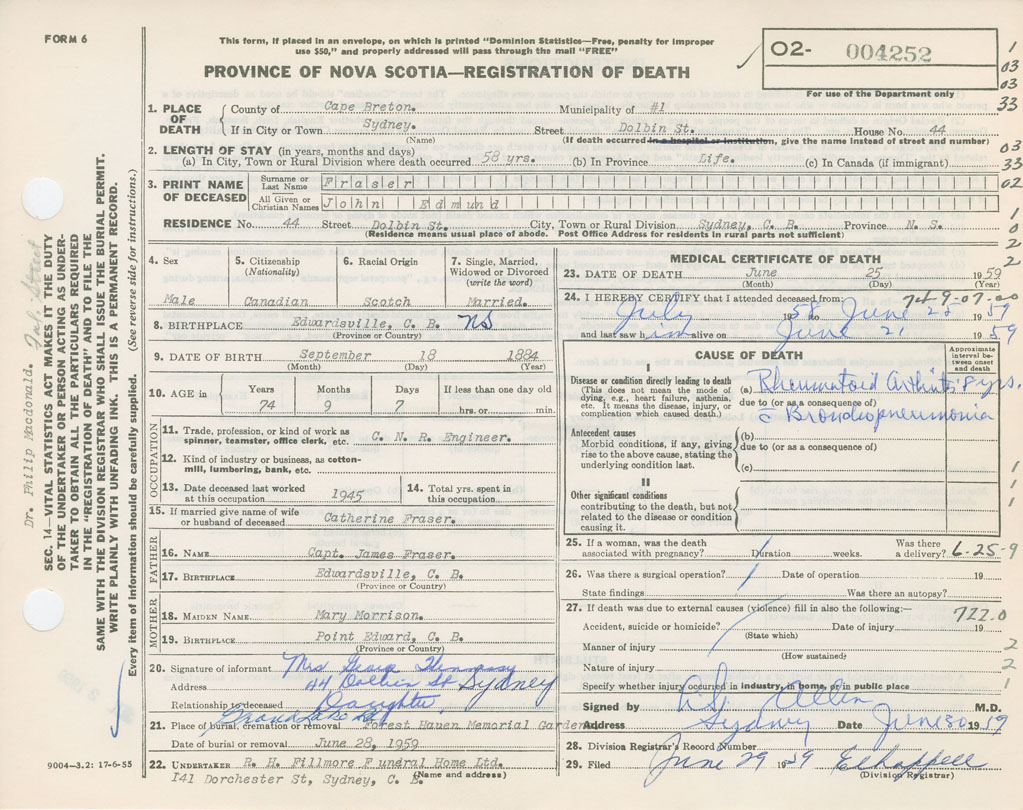 FORM 6
This form, if placed in an envelope, on which is printed "Dominion Statistics—Free, penalty for improper
use $50," and properly addressed will pass through the mail "FREE"
PROVINCE OF NOVA SCOTIA—REGISTRATION OF DEATH
02- 004252
For use of the Department only
1
03
03
33
03
33
02
1
0
2
2
1. PLACE OF DEATH County of Cape Breton. Municipality of #1
If in City or Town Sydney. Street Dolbin St. House No. 44
(Name) (If death occurred in a hospital or institution, give the name instead of street and number)
2. LENGTH OF STAY (in years, months and days)
(a) In City, Town or Rural Division where death occurred 58 yrs. (b) In Province Life. (c) In Canada (if immigrant)
3. PRINT NAME OF DECEASED Surname or Last Name Fraser
All Given or Christian Names John Edmund
RESIDENCE No. 44 Street Dolbin St. City, Town or Rural Division Sydney, C. B. Province N. S.
(Residence means usual place of abode. Post Office Address for residents in rural parts not sufficient)
4. Sex Male
5. Citizenship (Nationality) Canadian
6. Racial Origin Scotch
7. Single, Married, Widowed or Divorced (write the word) Married.
8. BIRTHPLACE Edwardsville, C. B. NS
(Province or Country)
9. DATE OF BIRTH September 18 1884
(Month) (Day) (Year)
10. AGE in Years Months Days If less than one day old
74 9 7 hrs. or min.
OCCUPATION
11. Trade, profession, or kind of work as spinner, teamster, office clerk, etc. C. N. R. Engineer.
12. Kind of industry or business, as cotton-mill, lumbering, bank, etc.
13. Date deceased last worked at this occupation 1945 14. Total yrs. spent in this occupation
15. If married give name of wife or husband of deceased Catherine Fraser.
FATHER
16. NAME Capt. James Fraser.
17. BIRTHPLACE Edwardsville, C. B.
(Province or Country)
MOTHER
18. MAIDEN NAME Mary Morrison.
19. BIRTHPLACE Point Edward, C. B.
(Province or Country)
20. Signature of informant Mrs George
Address 44 Dolbin St Sydney
Relationship to deceased Daughter
21. Place of burial, cremation or removal Forest Haven Memorial Gardens
Date of burial or removal June 28, 1959
22. UNDERTAKER R. H. Fillmore Funeral Home Ltd.
141 Dorchester St, Sydney, C. B.
(Name and address)
9004—3.2: 17-6-55
MEDICAL CERTIFICATE OF DEATH
23. DATE OF DEATH June 25 1959
(Month) (Day) (Year)
24. I HEREBY CERTIFY that I attended deceased from: 74-9-07-00
July 1958 to June 25 1959
and last saw him alive on June 21 1959
CAUSE OF DEATH
Approximate interval between onset and death
I
Disease or condition directly leading to death
(This does not mean the mode of dying, e.g., heart failure, asthenia, etc. It means the disease, injury, or complication which caused death.)
(a) Rheumatoid Arthritis 8 yrs.
due to (or as a consequence of)
c Bronchopneumonia
Antecedent causes
Morbid conditions, if any, giving rise to the above cause, stating the underlying condition last.
(b)
due to (or as a consequence of)
(c)
II
Other significant conditions
contributing to the death, but not related to the disease or condition causing it.
1
1
1
25. If a woman, was the death associated with pregnancy? Duration weeks. Was there a delivery? 6-25-9
26. Was there a surgical operation? Date of operation 19
State findings Was there an autopsy?
27. If death was due to external causes (violence) fill in also the following:— 722.0
Accident, suicide or homicide? Date of injury 19
(State which)
Manner of injury 2
(How sustained)
Nature of injury 2
Specify whether injury occurred in industry, in home, or in public place 1
Signed by Allen M.D.
Address Sydney Date June 30 1959
28. Division Registrar's Record Number
29. Filed June 29 1959 E Chappell
(Division Registrar)
Dr. Philip Macdonald.
SEC. 14—VITAL STATISTICS ACT MAKES IT THE DUTY
OF THE UNDERTAKER OR PERSON ACTING AS UNDER-
TAKER TO OBTAIN ALL THE PARTICULARS REQUIRED
IN THE "REGISTRATION OF DEATH" AND TO FILE THE
SAME WITH THE DIVISION REGISTRAR WHO SHALL ISSUE THE BURIAL PERMIT.
WRITE PLAINLY WITH UNFADING INK. THIS IS A PERMANENT RECORD.
Every item of information should be carefully supplied. (See reverse side for instructions.)